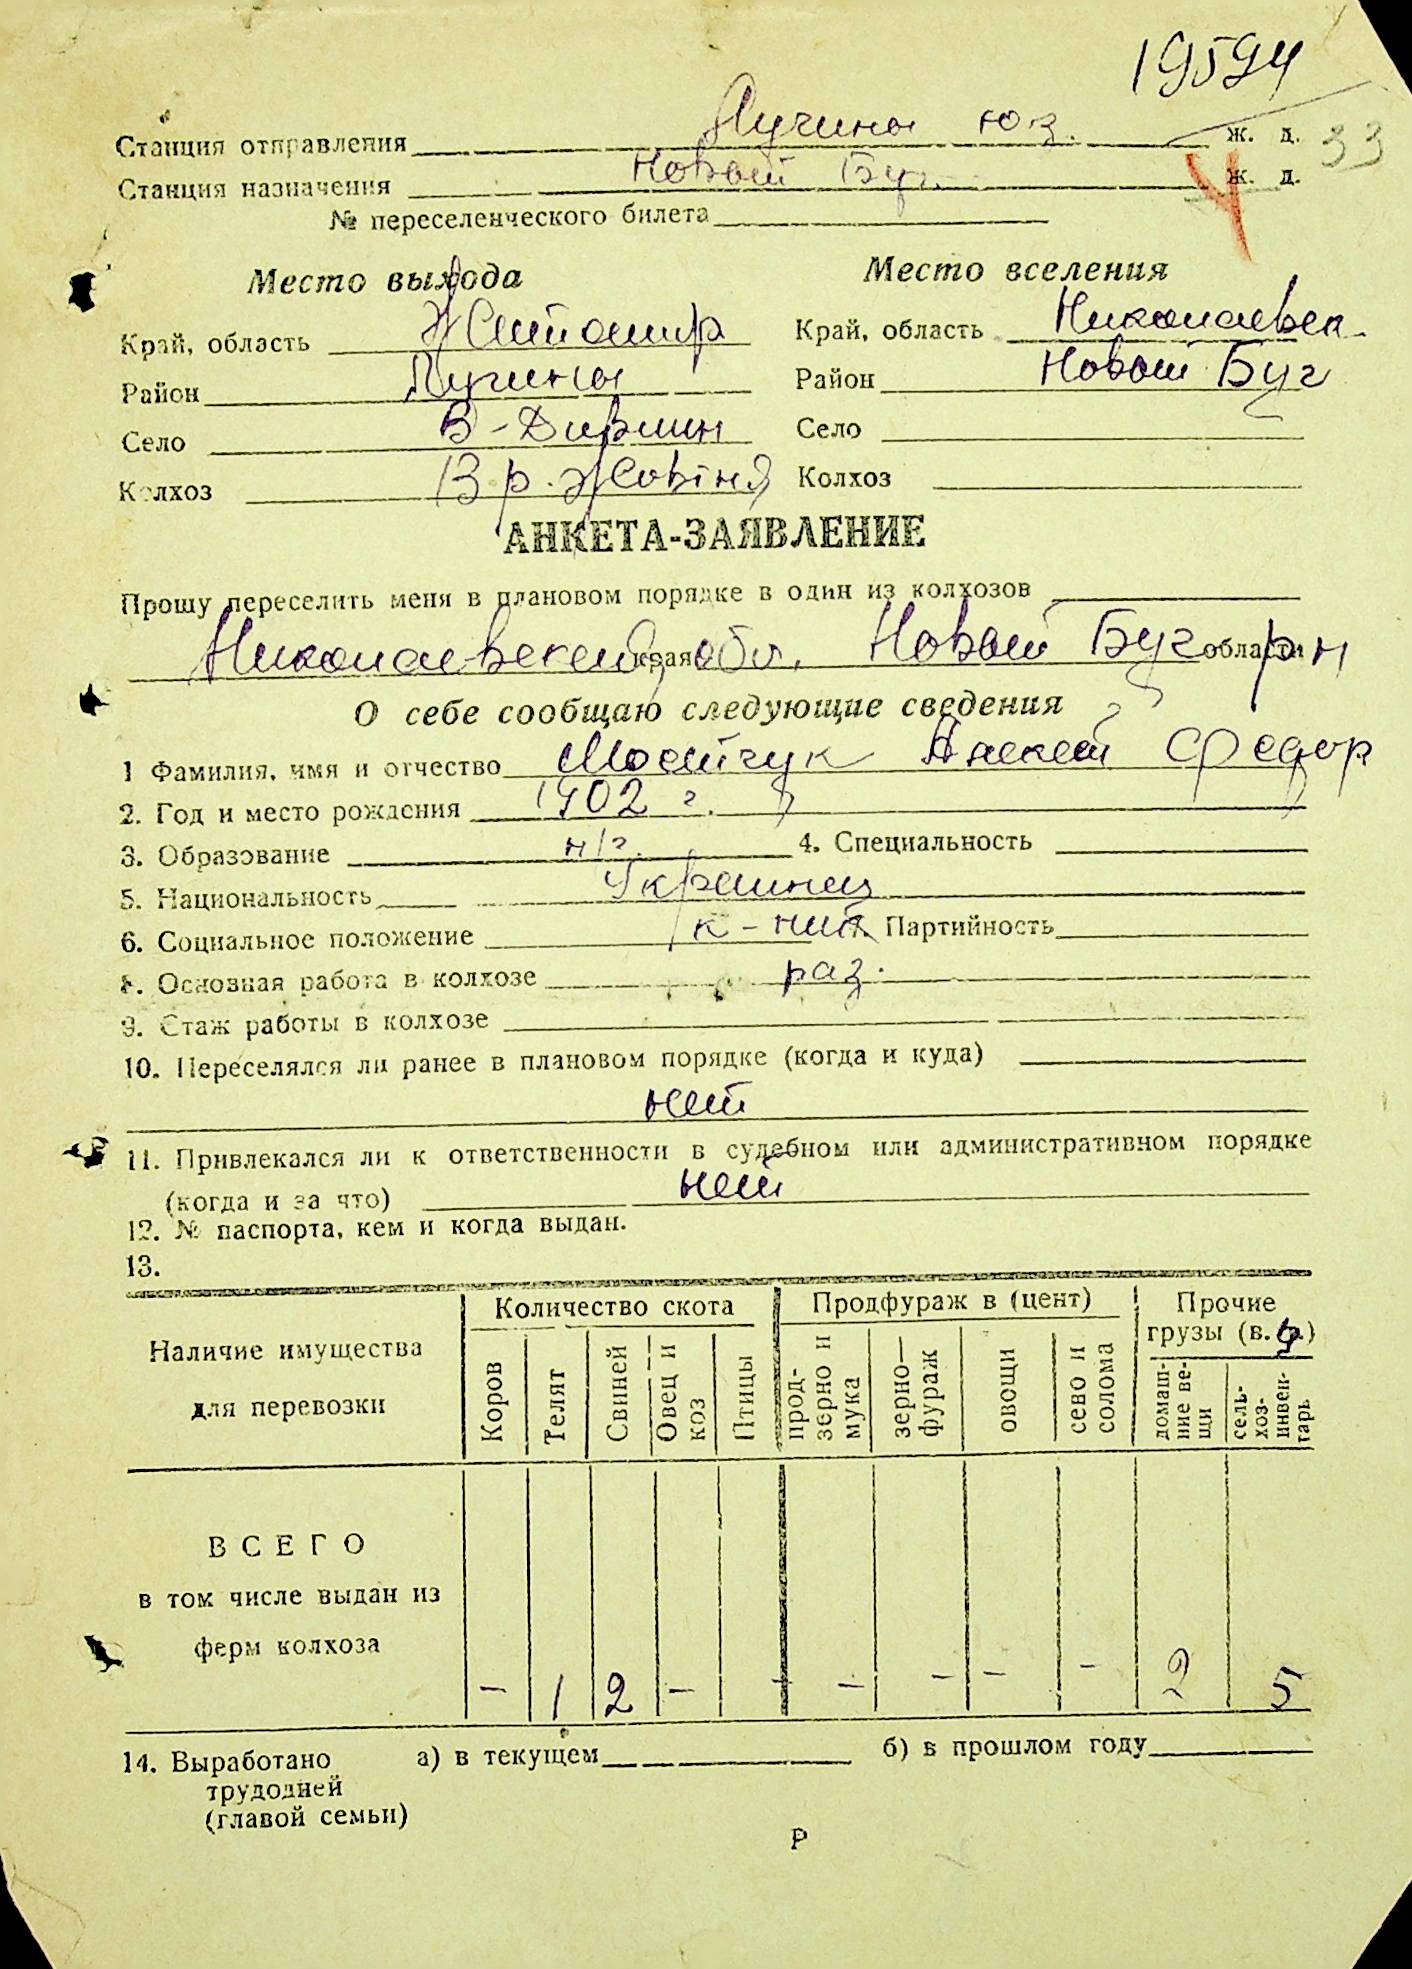 19594
Станция отправления Лучины ю.з. ж. д. 33
Станция назначения Новый Буг. ж. д. 4
№ переселенческого билета
Место выхода Место вселения
Край, область Житомир Край, область Николаевск.
Район Лучины Район Новый Буг
Село В-Дивлин Село
Колхоз 13 р. Жовтня Колхоз
АНКЕТА-ЗАЯВЛЕНИЕ
Прошу переселить меня в плановом порядке в один из колхозов
Николаевской края обл. Новый Буг области р-н
О себе сообщаю следующие сведения
1 Фамилия, имя и отчество Мостчук Алексей Федор
2. Год и место рождения 1902 г.
3. Образование н/г. 4. Специальность
5. Национальность Украинец
6. Социальное положение к-ник Партийность
8. Основная работа в колхозе раз.
9. Стаж работы в колхозе
10. Переселялся ли ранее в плановом порядке (когда и куда)
нет
11. Привлекался ли к ответственности в судебном или административном порядке
(когда и за что) нет
12. № паспорта, кем и когда выдан.
13.
Наличие имущества для перевозки
Количество скота Продфураж в (цент) Прочие грузы (в. ц.)
Коров Телят Свиней Овец и коз Птицы прод-зерно и мука зерно—фураж овощи сено и солома домаш-ние ве-щи сель-хоз-инвен-тарь
ВСЕГО
в том числе выдан из
ферм колхоза
– 1 2 – - – – – – 2 5
14. Выработано а) в текущем б) в прошлом году
трудодней
(главой семьи)
Р